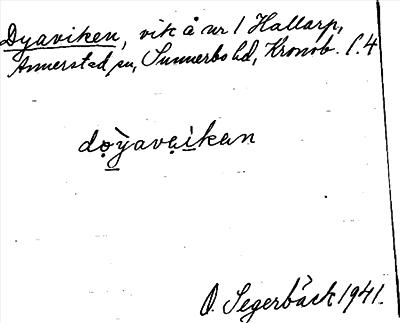 Dyaviken, vik å nr 1 Hallarp,
Annerstad sn, Sunnerbo hd, Kronob. l. 4
do̤ỳavaìkan
O. Segerbäck 1941.